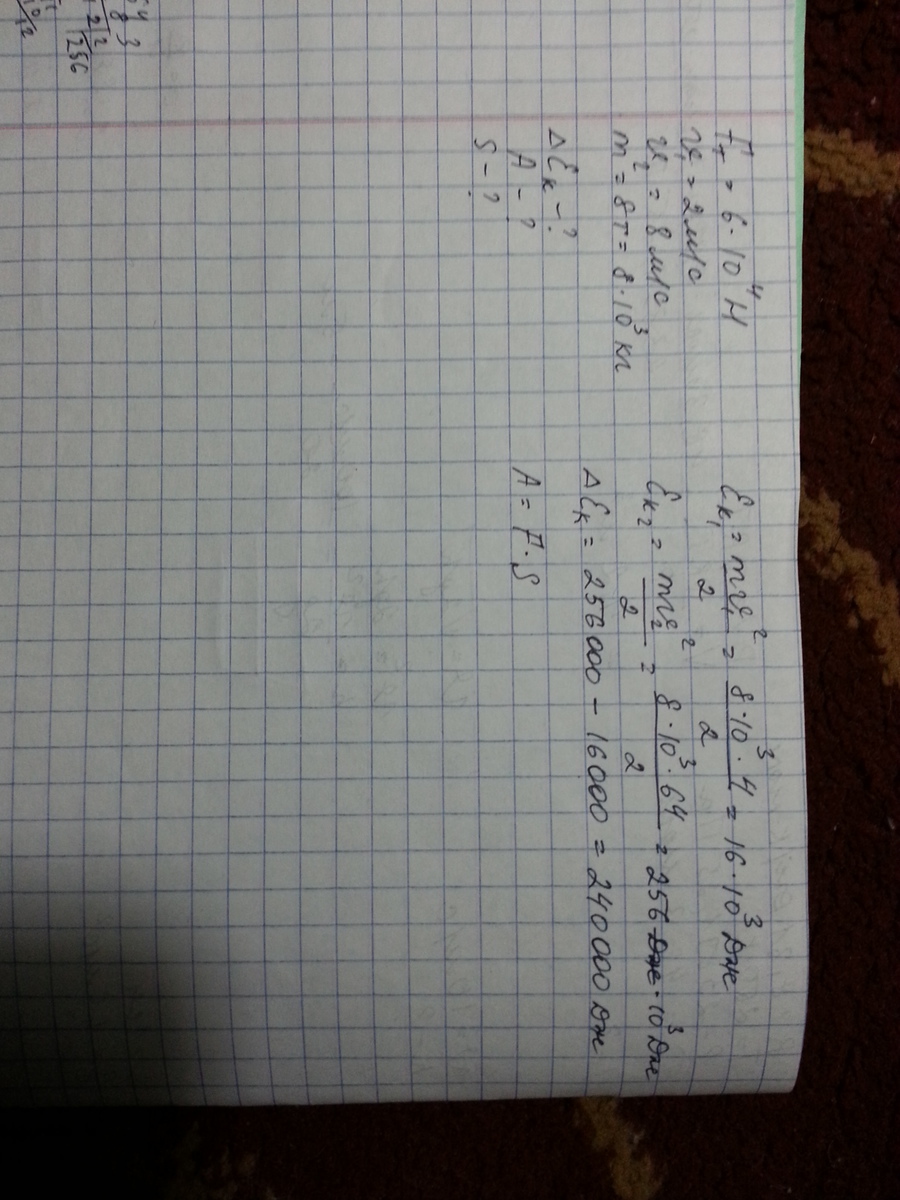 Fт = 6·10⁴ Н
v₁ = 2 м/с
v₂ = 8 м/с
m = 8т = 8·10³ кг
ΔEк - ?
A - ?
S - ?
Eк₁ = mv₁²/2 = 8·10³·4/2 = 16·10³ Дж
Eк₂ = mv₂²/2 = 8·10³·64/2 = 256 Дж·10³ Дж
ΔEк = 256000 - 16000 = 240000 Дж
A = F·S
256